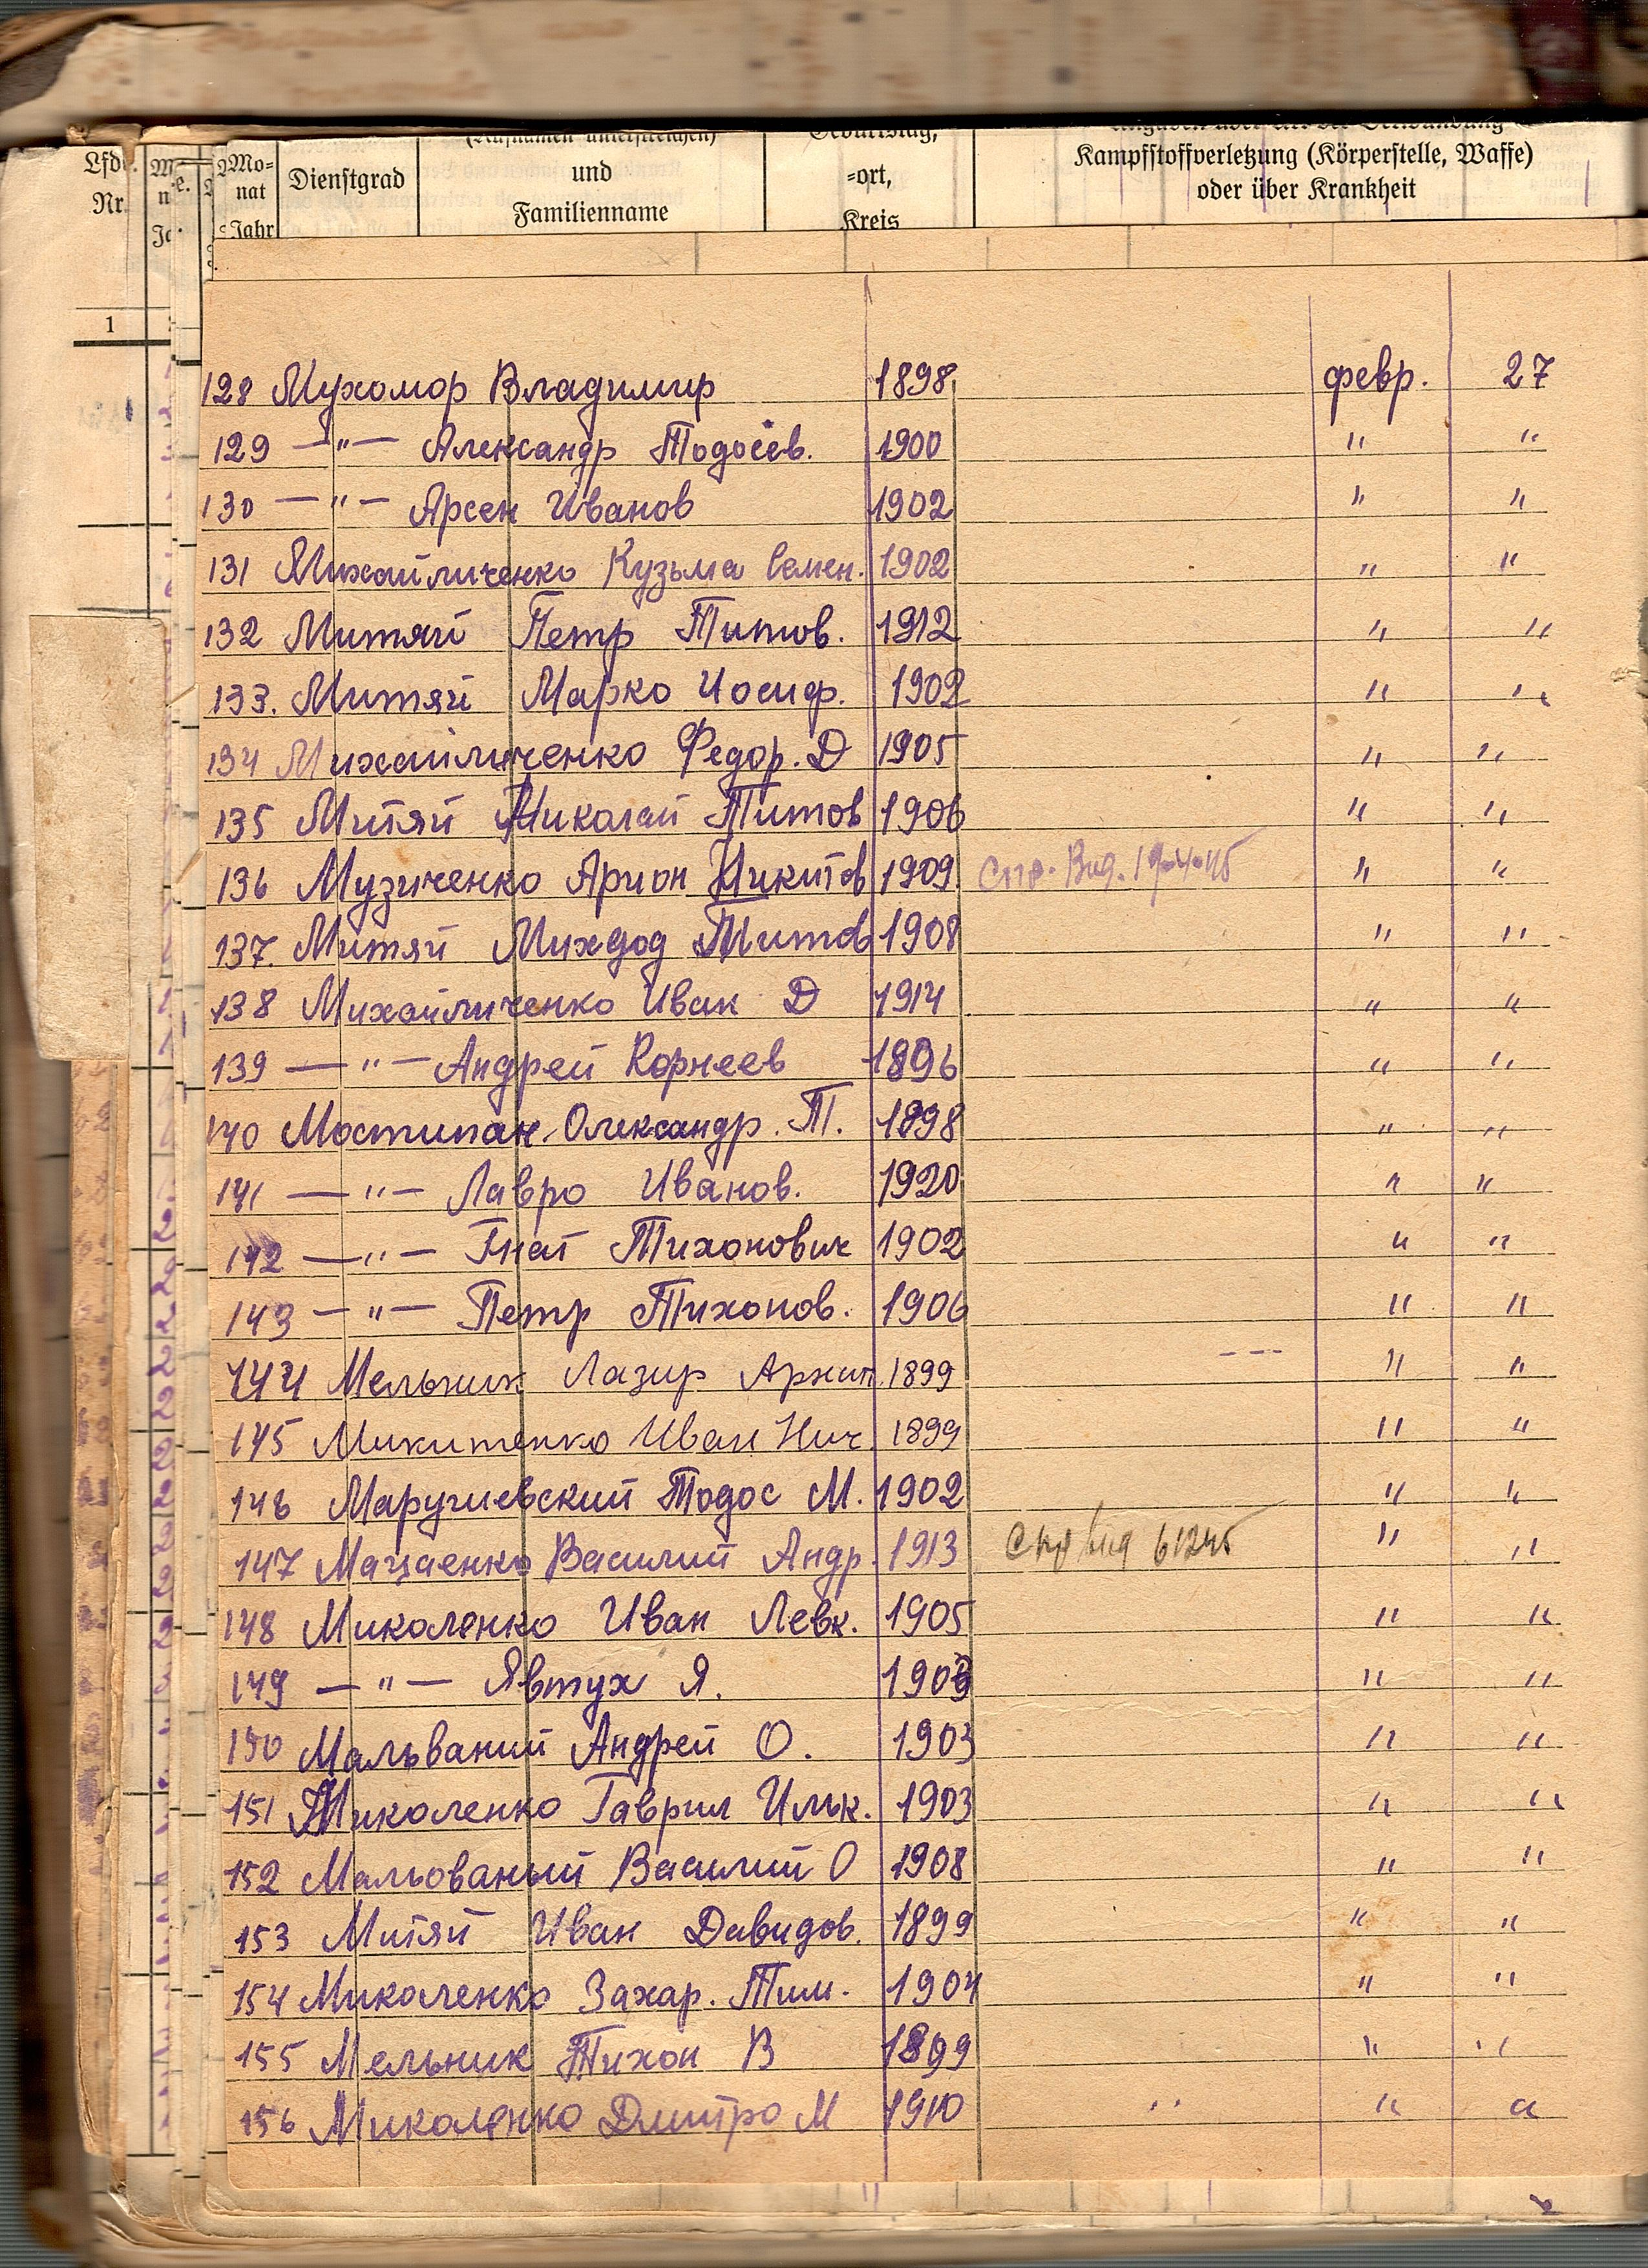 Lfd. Nr.
Mo-
nat
Jahr
Dienstgrad
(Rufnamen unterstreichen)
und
Familienname
Geburtstag,
-ort,
Kreis
Kampfstoffverletzung (Körperstelle, Waffe)
oder über Krankheit
1
128 Мухомор Владимир 1898 февр. 27
129 —"— Александр Тодосев. 1900 " "
130 —"— Арсен Иванов 1902 " "
131 Михайличенко Кузьма Семен. 1902 " "
132 Митяй Петр Титов. 1912 " "
133. Митяй Марко Иосиф. 1902 " "
134 Михайличенко Федор. Д 1905 " "
135 Митяй Николай Титов 1906 " "
136 Музиченко Арион Никитов 1909 Спр. Вид. " "
137. Митяй Титов 1908 " "
138 Михайличенко Иван Д 1914 " "
139 —"— Андрей Корнеев 1896 " "
140 Мостипан Олександр. Т. 1898 " "
141 —"— Лавро Иванов. 1920 " "
142 —"— Гнат Тихонович 1902 " "
143 —"— Петр Тихонов. 1906 " "
144 Мельник Лазир Архип. 1899 " "
145 Микитенко Иван Нич. 1899 " "
146 Маручиевский Тодос М. 1902 " "
147 Василий Андр. 1913 Спр вид " "
148 Миколенко Иван Левк. 1905 " "
149 —"— Явтух Я. " "
150 Мальваний Андрей О. 1903 " "
151 Миколенко Гаврил Ильк. 1903 " "
152 Мальованый Василий О 1908 " "
153 Митяй Иван Давидов. 1899 " "
154 Миколенко Захар. Тим. 1904 " "
155 Мельник Тихон В 1899 " "
156 Миколенко Дмитро М 1910 " " "